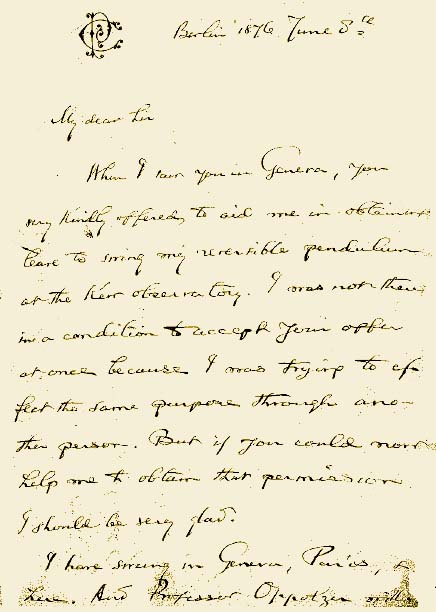 CP
Berlin 1876 June 8
My dear Sir
When I saw you in Geneva, you
very kindly offered to aid me in obtaining
leave to swing my reversible pendulum
at the Kew observatory. I was not then
in a condition to accept your offer
at once because I was trying to ef-
fect the same purpose through ano-
ther person. But if you could now
help me to obtain that permission
I should be very glad.
I have swung in Geneva, Paris, &
here. And Professor Oppolzer will